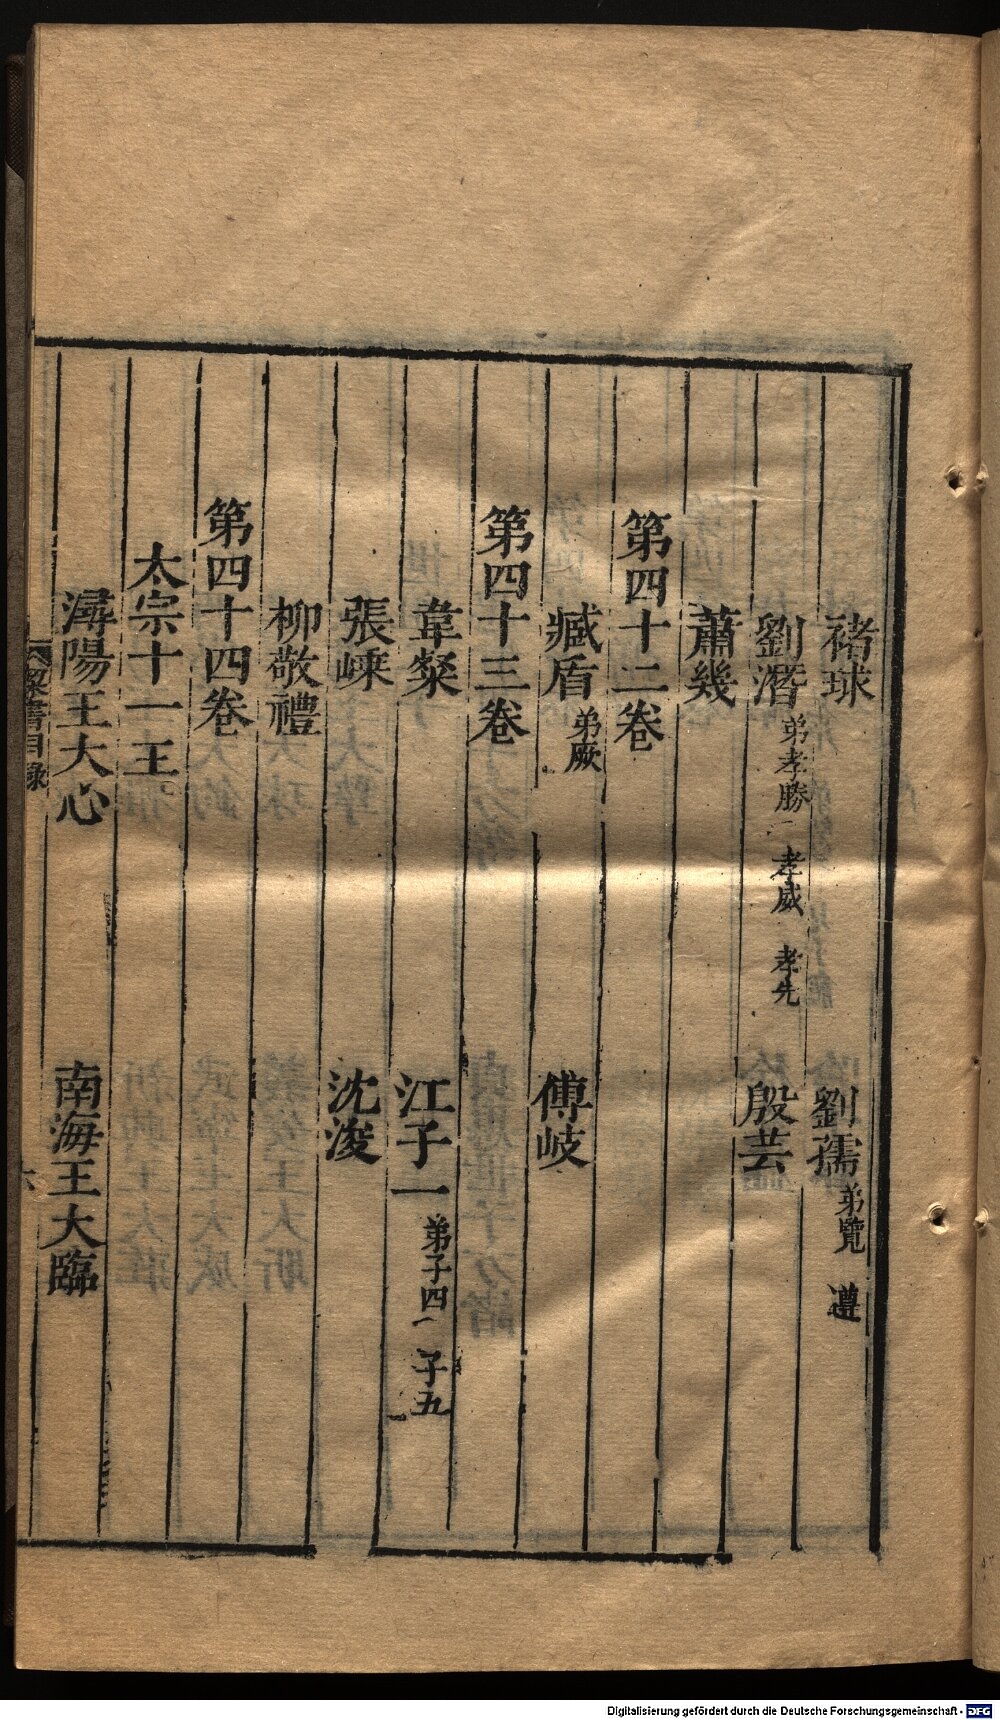 褚球　劉孺 弟覽　遵
劉潛 弟孝勝　孝威　孝先　殷芸
蕭幾
第四十二卷
臧盾 弟厥　傅岐
第四十三卷
韋粲　江子一 弟子四　子五
張嵊　沈浚
柳敬禮
第四十四卷
太宗十一王
潯陽王大心　南海王大臨
梁書目錄　六
Digitalisierung gefördert durch die Deutsche Forschungsgemeinschaft - DFG